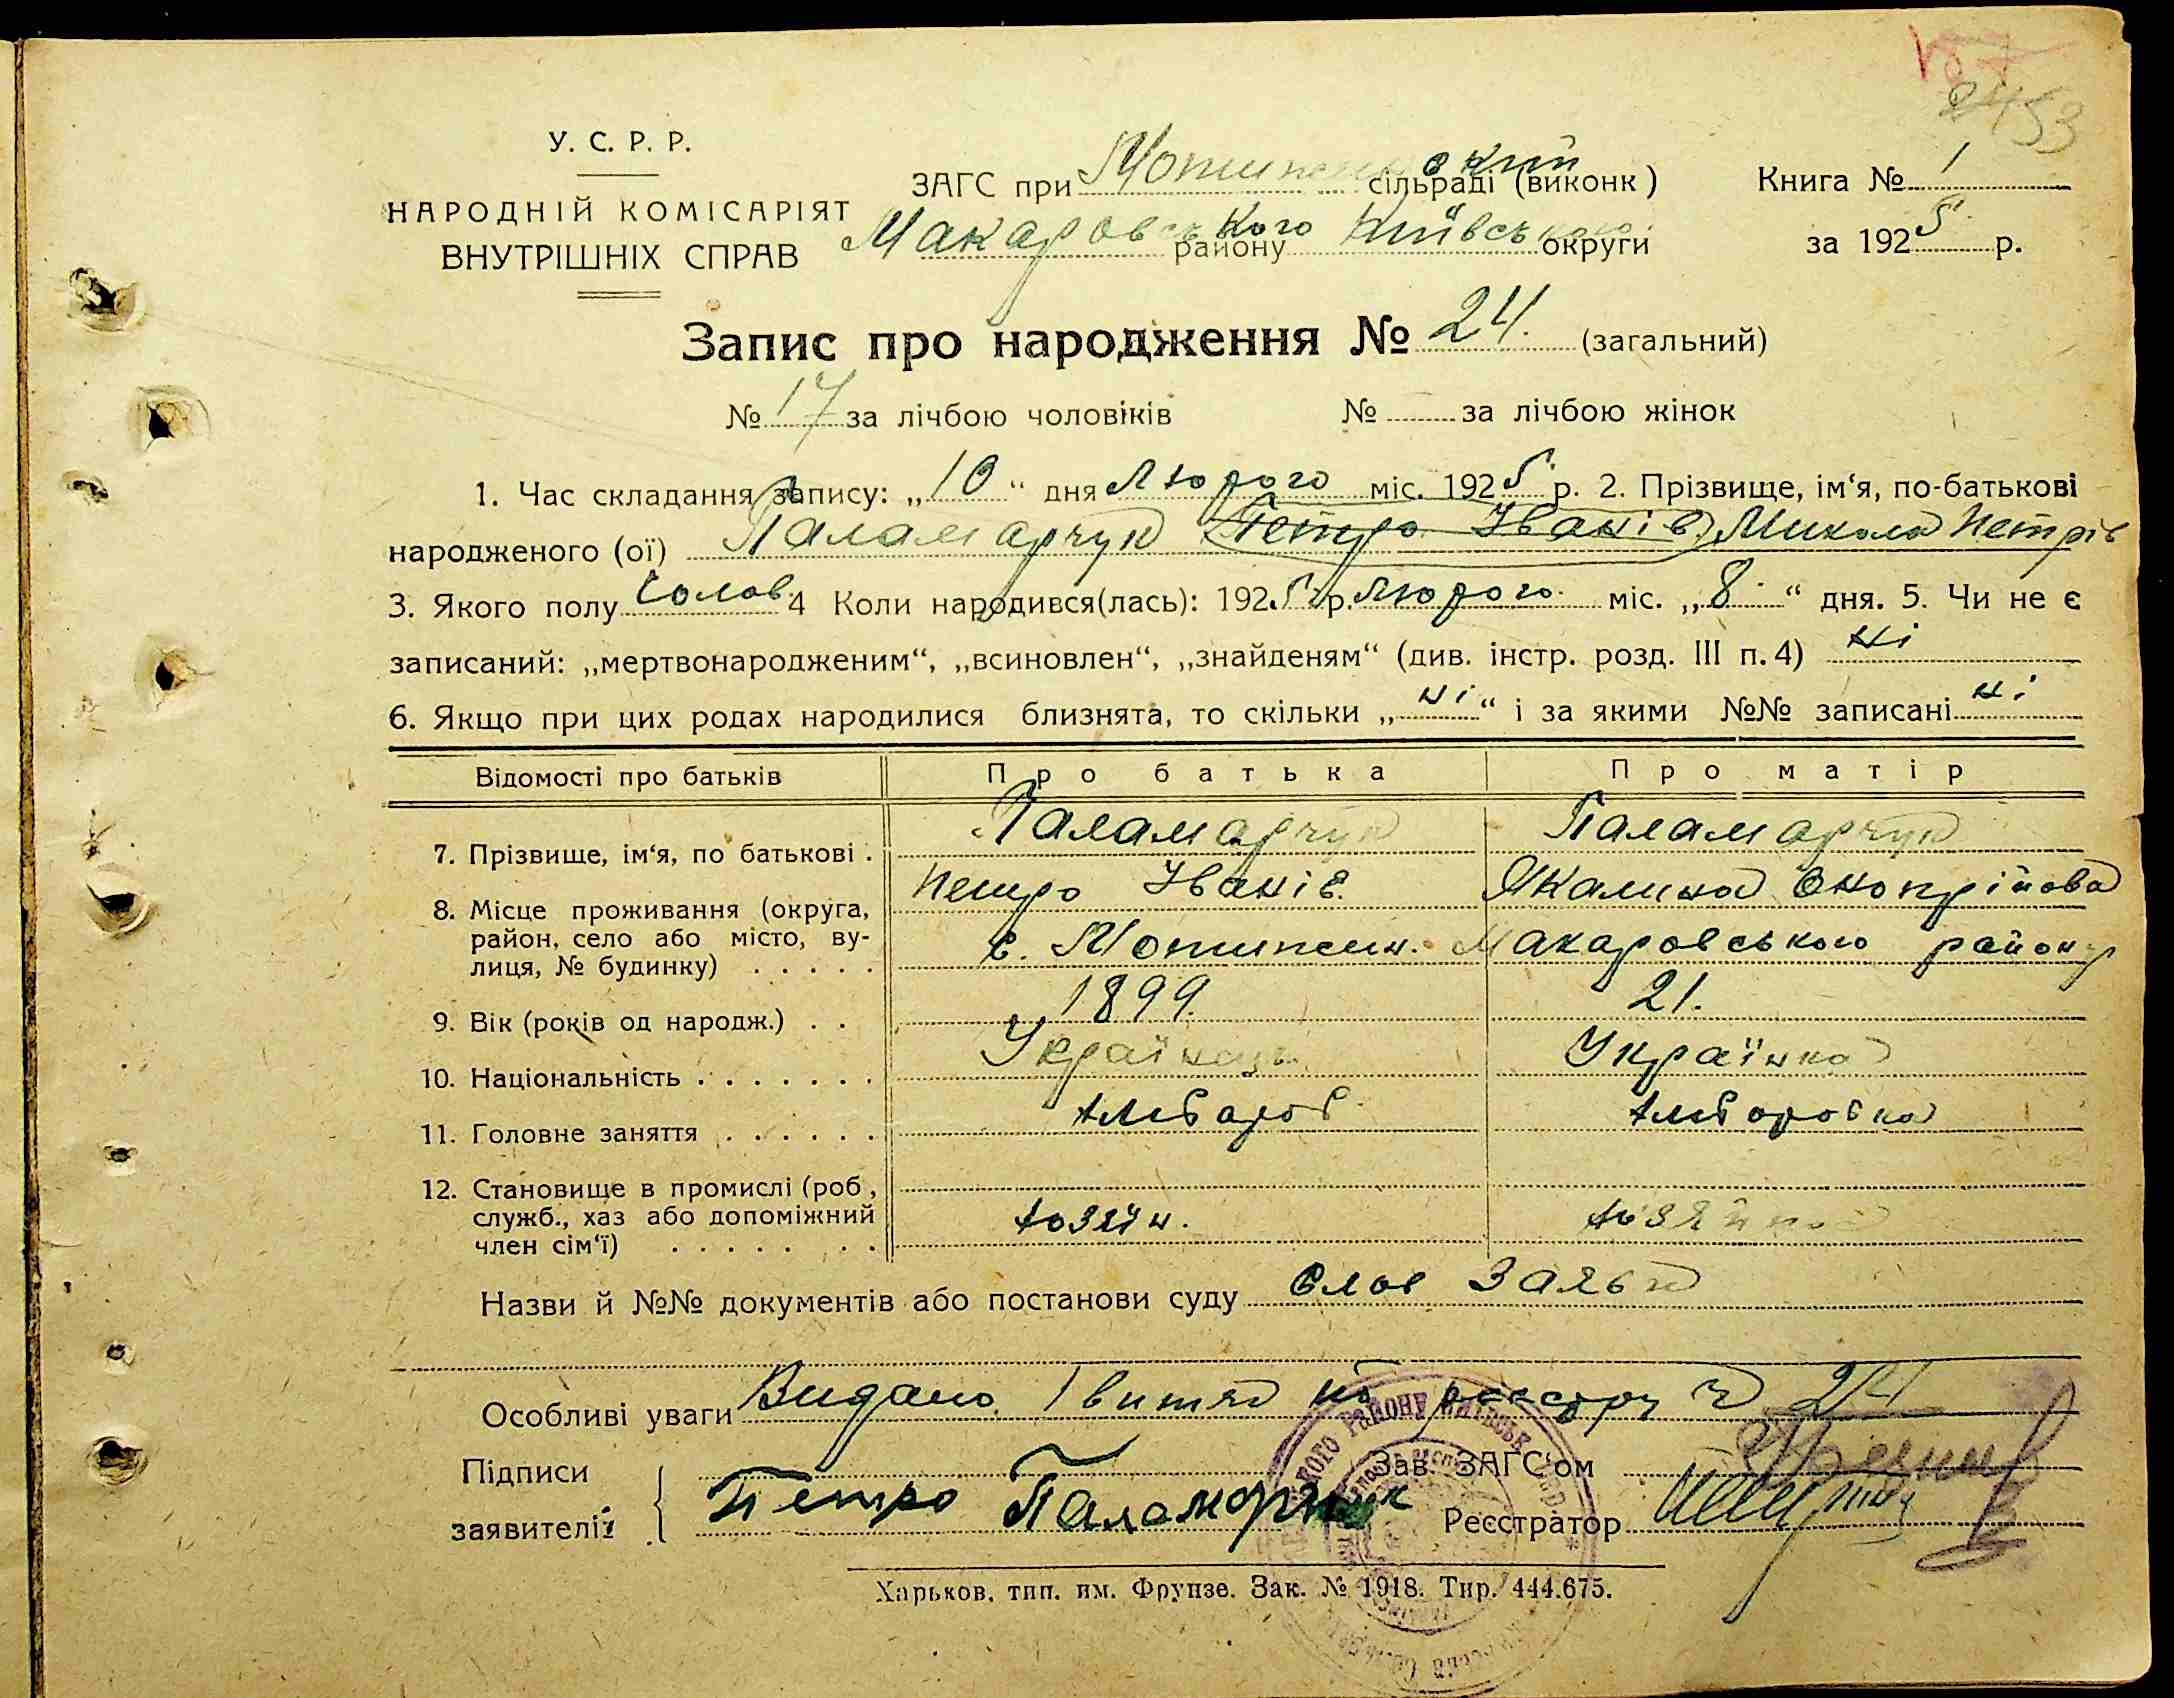 У. С. Р. Р.
НАРОДНІЙ КОМІСАРІЯТ
ВНУТРІШНІХ СПРАВ
ЗАГС при Мотижинский сільраді (виконк)
Макаровського району Київського округи
Книга № 1
за 1925 р.
53
Запис про народження № 24. (загальний)
№ 17 за лічбою чоловіків № за лічбою жінок
1. Час складання запису: „10“ дня Лютого міс. 1925 р. 2. Прізвище, ім‘я, по-батькові
народженого (ої) Паламарчук Петро Іванів Микола Петрів
3. Якого полу Чолов. 4 Коли народився(лась): 1925 р. Лютого міс. „8“ дня. 5. Чи не є
записаний: „мертвонародженим“, „всиновлен“, „знайденям“ (див. інстр. розд. III п. 4) ні
6. Якщо при цих родах народилися близнята, то скільки „ні“ і за якими №№ записані ні
Відомості про батьків Про батька Про матір
7. Прізвище, ім‘я, по батькові . Паламарчук Паламарчук
Петро Іванів. Якилина Онопріїова
8. Місце проживання (округа,
район, село або місто, ву-
лиця, № будинку) . . . . . с. Мотижин. Макаровського району
9. Вік (років од народж.) . . 1899. 21.
10. Національність . . . . . . . Українець Українка
11. Головне заняття . . . . . . хлібороб хлібороbка
12. Становище в промислі (роб,
служб., хаз або допоміжний
член сім‘ї) . . . . . . . хозяїн. хозяйка
Назви й №№ документів або постанови суду Слов Заява
Особливі уваги Видано 1 витяг по реєстру № 24
Підписи
заявителів
Петро Паламарчук
Зав. ЗАГС‘ом
Реєстратор
Харьков, тип. им. Фрунзе. Зак. № 1918. Тир. 444.675.